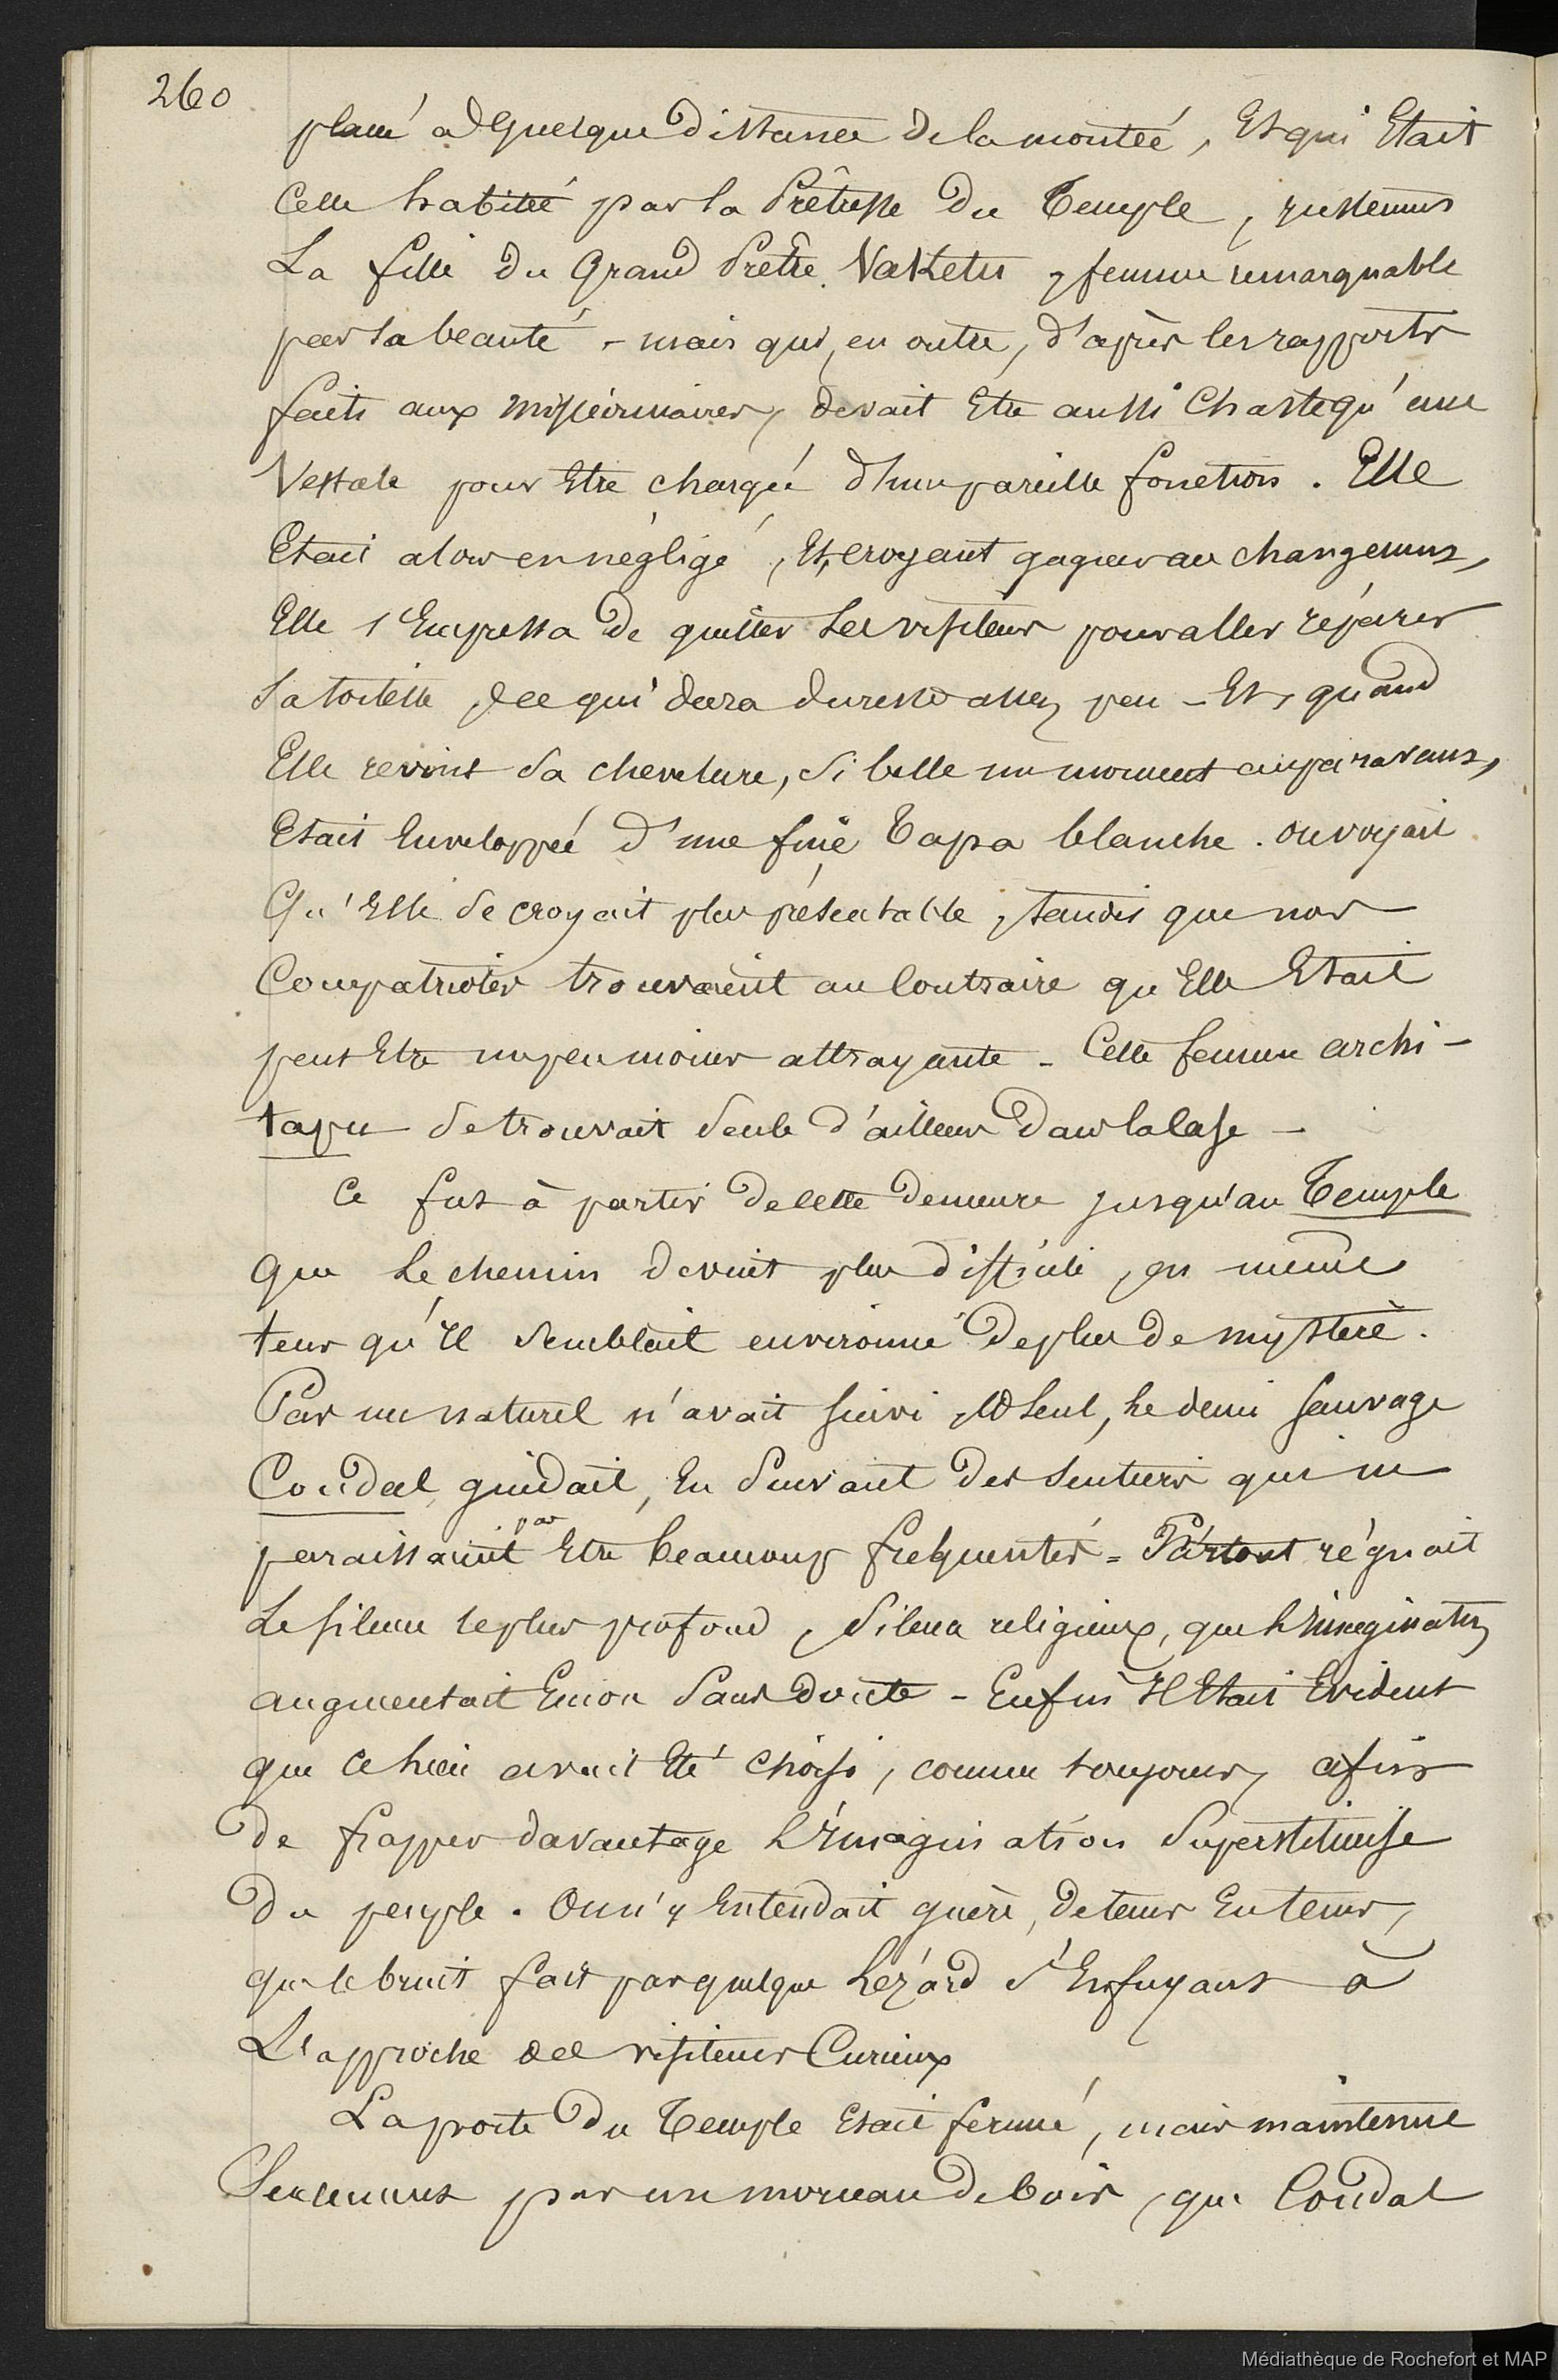 260
placé à quelque distance de la montée, Et qui Etait
Celle habitée par la Prêtresse du Temple, justement
La fille du Grand Prêtre Vaketu, femme remarquable
par sa beauté - mais qui, en outre, d'après les rapports
faits aux missionnaires, devait Etre aussi Chaste qu'une
Vestale pour Etre chargée d'une pareille fonction. Elle
Etait alors en négligé, Et, croyant gagner au changement,
Elle s'Empressa de quitter Les visiteurs pour aller réparer
sa toilette, ce qui dura du reste assez peu - Et, quand
Elle revint sa chevelure, si belle un moment auparavant,
Etait Enveloppée d'une fine Tapa blanche. on voyait
Qu'Elle se croyait plus présentable, tandis que nos
Compatriotes trouvaient au Contraire qu'Elle Etait
peut Etre un peu moins attrayante - Cette femme archi-
tapu se trouvait seule d'ailleurs dans la Case -
Ce fut à partir de cette demeure jusqu'au Temple
que Le chemin devint plus difficile, en même
tems qu'Il semblait environné de plus de mystère.
Pas un naturel n'avait suivi, seul, Le demi sauvage
Coudal guidait, En suivant des sentiers qui ne
paraissaient pas Etre beaucoup fréquentés = Partout régnait
Le silence le plus profond, silence religieux, que L'imagination
augmentait Encore sans doute - Enfin Il Etait Evident
que Ce Lieu avait Eté choisi, comme toujours, afin
de frapper davantage L'Imagination superstitieuse
du peuple. On n'y Entendait guère, de tems En tems,
que le bruit fait par quelque Lézard s'Enfuyant à
L'approche des visiteurs Curieux
La porte du Temple Etait fermée, mais maintenue
Seulement par un morceau de bois, que Coudal
Médiathèque de Rochefort et MAP